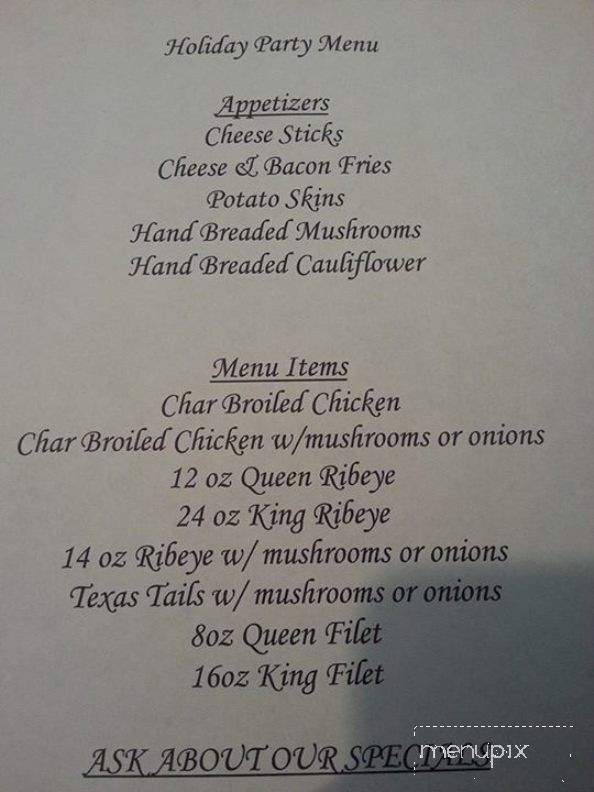 Holiday Party Menu
Appetizers
Cheese Sticks
Cheese & Bacon Fries
Potato Skins
Hand Breaded Mushrooms
Hand Breaded Cauliflower
Menu Items
Char Broiled Chicken
Char Broiled Chicken w/mushrooms or onions
12 oz Queen Ribeye
24 oz King Ribeye
14 oz Ribeye w/ mushrooms or onions
Texas Tails w/ mushrooms or onions
8oz Queen Filet
16oz King Filet
ASK ABOUT OUR SPECIALS
menupix